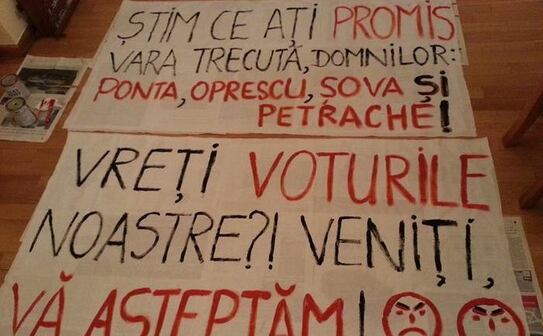 ȘTIM CE AȚI PROMIS
VARA TRECUTĂ, DOMNILOR:
PONTA, OPRESCU, ȘOVA ȘI
PETRACHE!
VREȚI VOTURILE
NOASTRE?! VENIȚI,
VĂ AȘTEPTĂM!